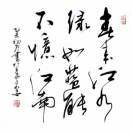 春来江水
绿如蓝能
不憶江南